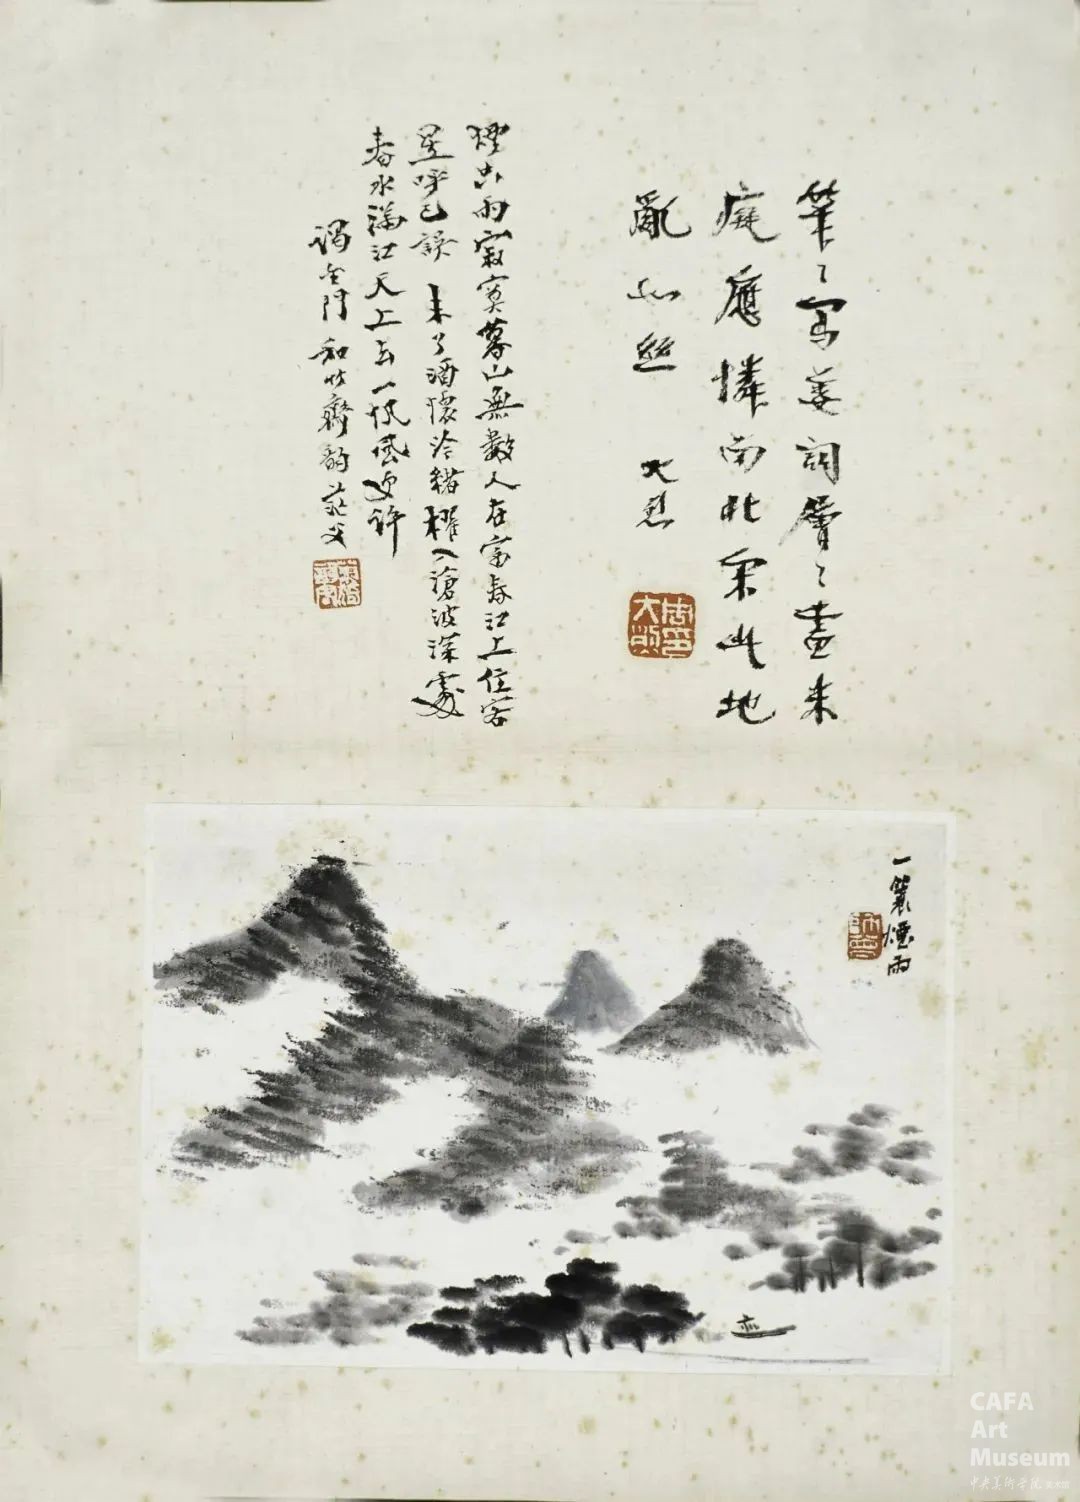 筆〻寫姜詞層〻畫米
癡應憐南北宋此地
亂如絲 大烈
周印大烈
煙共雨寂寞暮山無數人在富春江上住客
星呼已誤 未了酒懷吟緒櫂入滄波深處
春水滿江天上去一帆風更許
謁金門 和竹齋韵 茫父
一蓑煙雨
師曾
CAFA
Art
Museum
中央美術學院